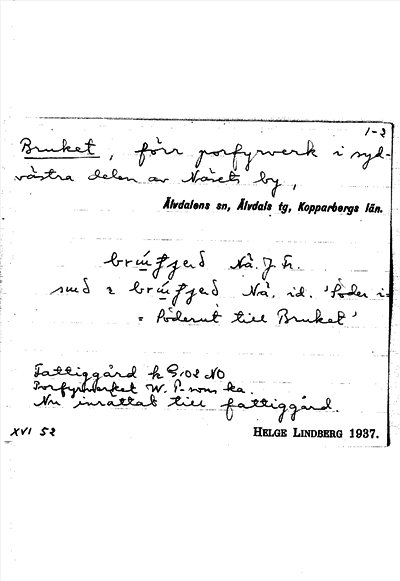 1-2
Bruket, förr porfyrverk i syd-
västra delen av Näsets by,
Älvdalens sn, Älvdals tg, Kopparbergs län.
Nä. J. Fr.
Nä. id. 'Söder i-
= Söderut till Bruket'
Fattiggård k 9,02 NO
Porfyrverket W. P-nom ka.
Nu inrättat till fattiggård.
XVI 52
HELGE LINDBERG 1937.